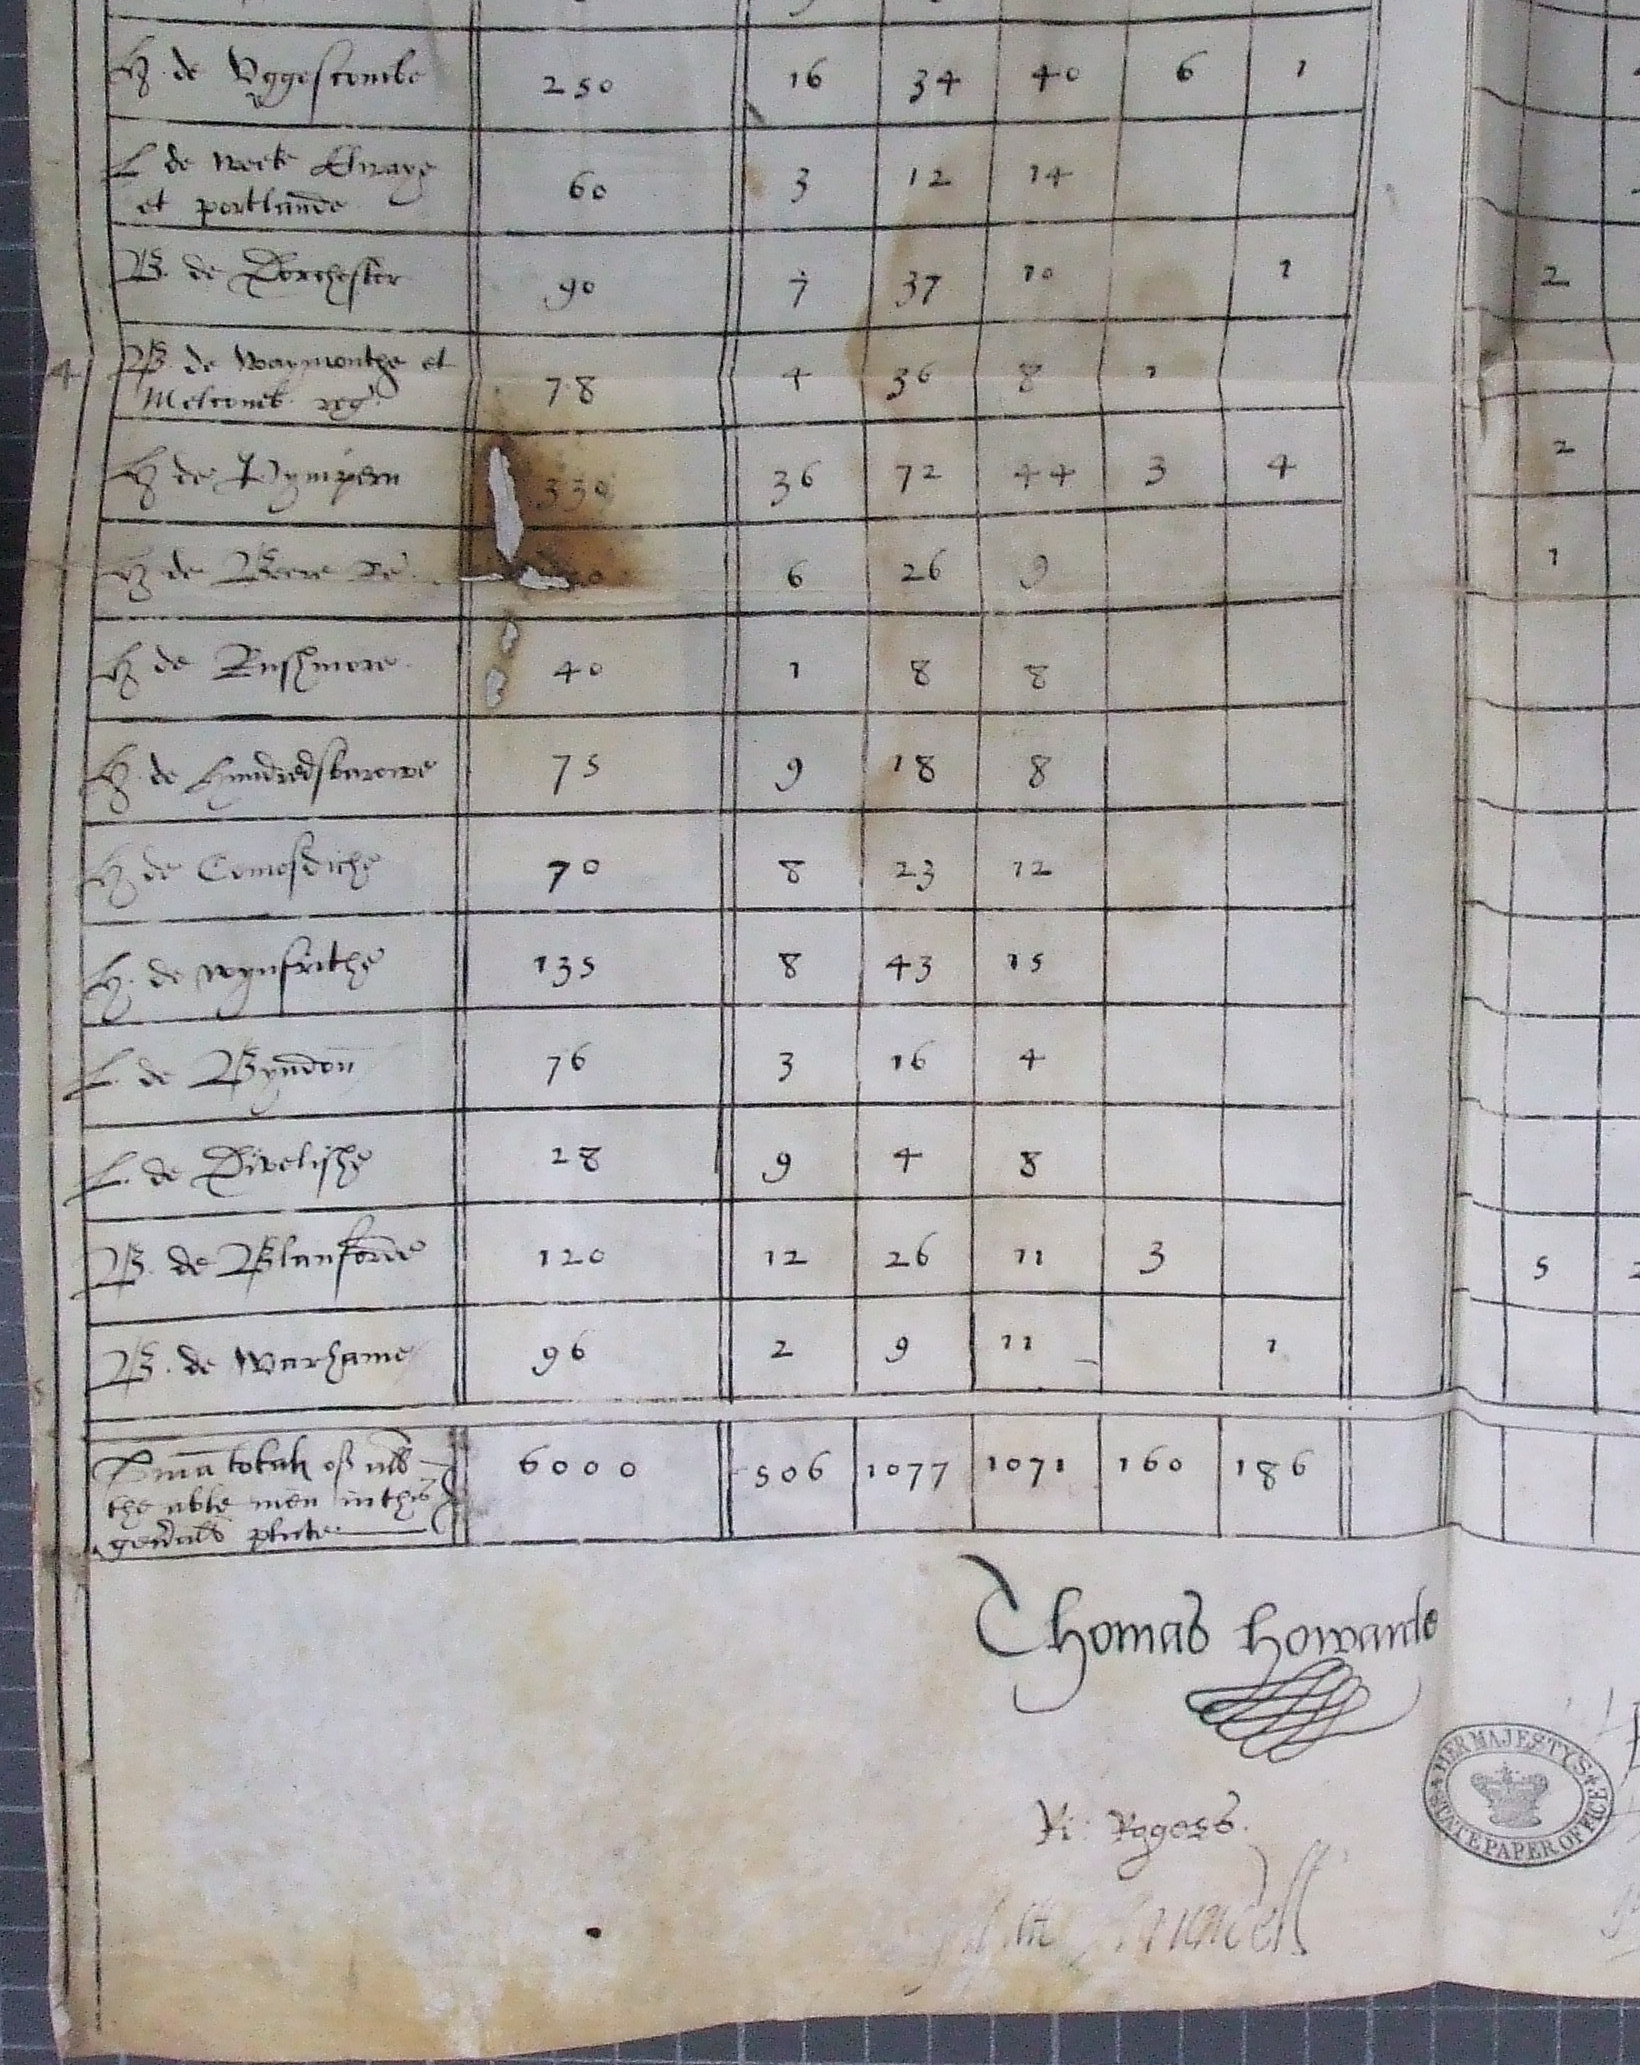 H de Uggescombe 250 16 34 40 6 1
L de Weeke
et portlande 60 3 12 14
B. de Dorchester 90 7 37 10 1 2
4 B. de Waymouthe et
Melcomb reg 78 4 36 8 1
H de Pympern 330 36 72 44 3 4 2
H de Beere re 6 26 9 1
H de Rushmore 40 1 8 8
H de hundredsbarowe 75 9 18 8
H de Comesdiche 70 8 23 12
H. de wynfrithe 135 8 43 15
L. de Byndon 76 3 16 4
L. de Divelishe 28 9 4 8
B. de Blanforde 120 12 26 11 3 5
B. de Warhame 96 2 9 11 1
Suma totalis of all
the able men in this
generall plate 6000 506 1077 1071 160 186
Thomas Howarde
Ri: Rogers.
Arundell
HER MAJESTY'S
STATE PAPER OFFICE